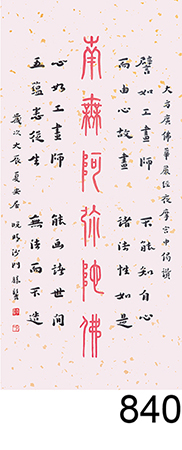 大方廣佛華嚴經夜摩宮中偈讚
譬如工畫師　不能知自心
而由心故畫　諸法性如是
南無阿彌陀佛
心如工畫師　能畫諸世間
五蘊悉從生　無法而不造
歲次大辰夏安居
沙門
840